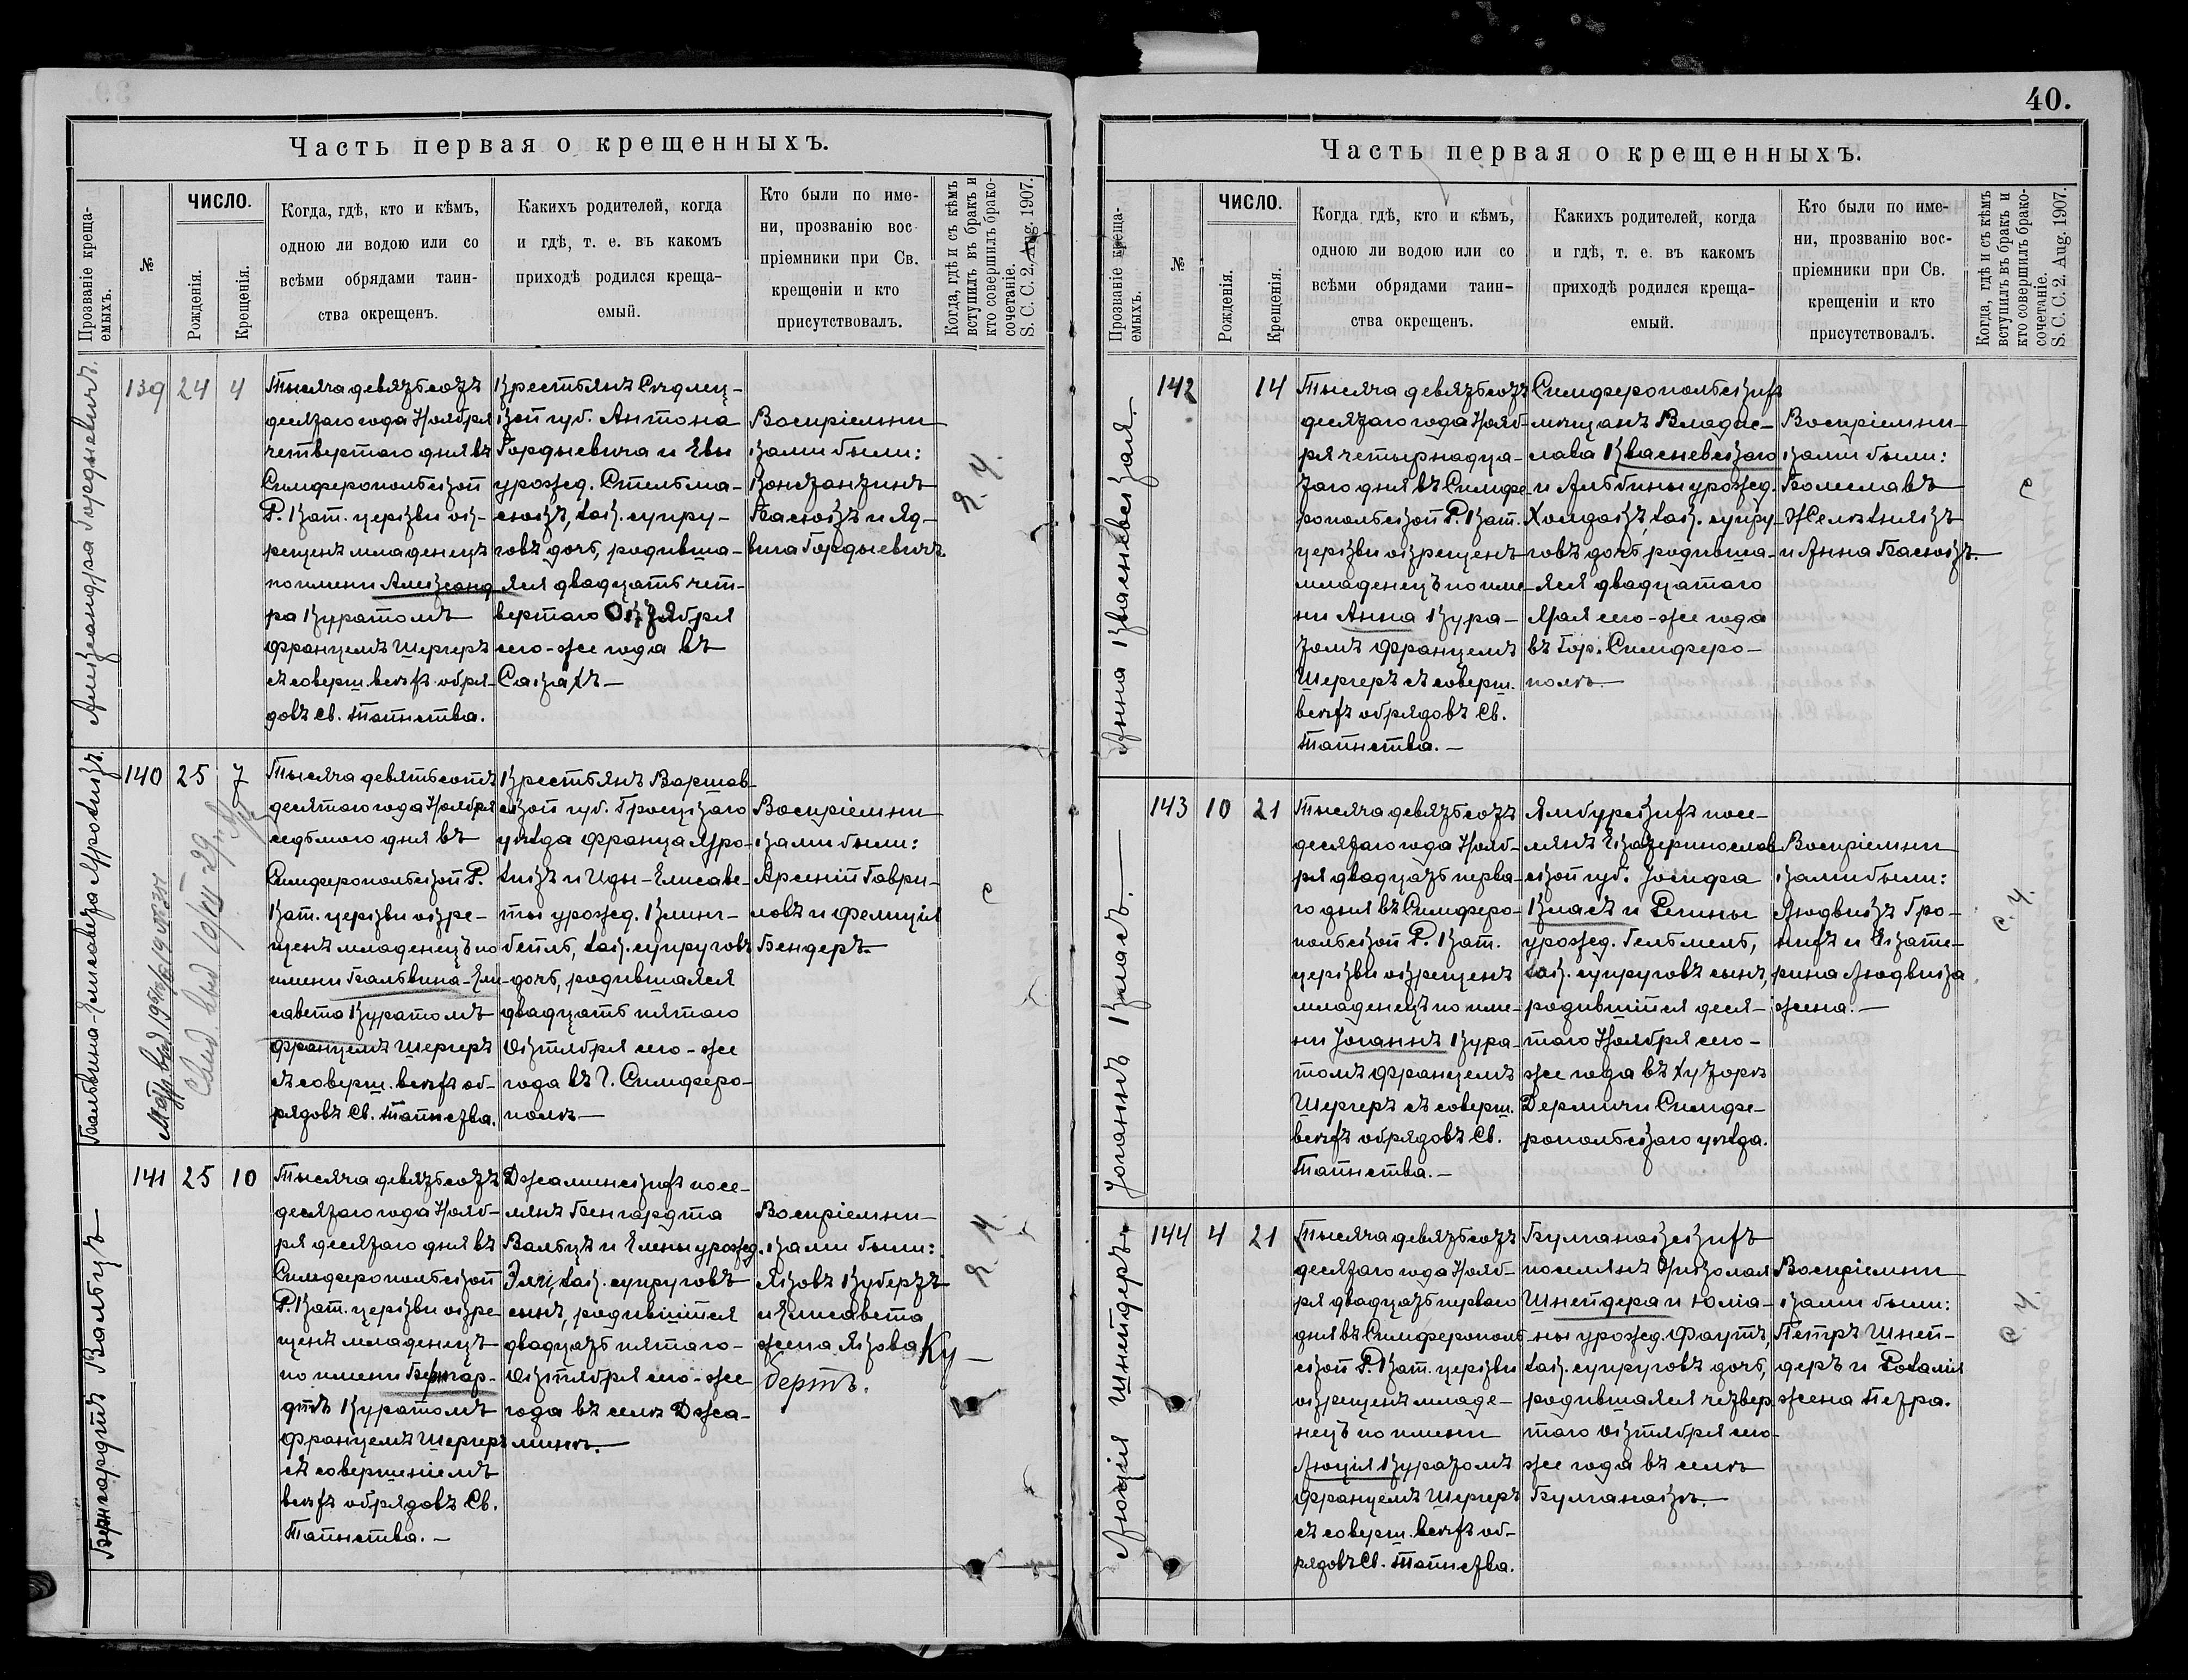 Часть первая о крещенныхъ.
Прозваніе креща-
емыхъ.
№
ЧИСЛО.
Рожденія.
Крещенія.
Когда, гдѣ, кто и кѣмъ,
одною ли водою или со
всѣми обрядами таин-
ства окрещенъ.
Какихъ родителей, когда
и гдѣ, т. е. въ какомъ
приходѣ родился креща-
емый.
Кто были по име-
ни, прозванію вос
пріемники при Св.
крещеніи и кто
присутствовалъ.
Когда, гдѣ и съ кѣмъ
вступилъ въ бракъ и
кто совершилъ брако-
сочетаніе.
S. C. C. 2. Aug. 1907.
Александра Гордыевичъ.
139 24 4
Тысяча девятьсотъ
десятаго года Ноября
четвертаго дня въ
Симферопольской
Р. Кат. церкви ок-
рещенъ младенецъ
по имени Александ
ра Куратомъ
Францемъ Шергеръ
съ соверш. всѣхъ обря-
довъ Св. Таинства.
Крестьянъ Сѣдлец-
кой губ. Антона
Гордыевича и Евы
урожд. Стельма-
сюкъ, зак. супру-
говъ дочь, родивша-
яся двадцать чет-
вертаго Октября
сего-же года въ
Сакахъ—
Воспріемни
ками были:
Константинъ
Басюкъ и Яд-
вига Гордыевичъ.
Бальвина-Елисавета Мрозикъ.
140 25 7
Тысяча девятьсотъ
десятаго года Ноября
седьмого дня въ
Симферопольской Р.
Кат. церкви окре-
щенъ младенецъ по
имени Бальвина-Ели
савета Куратомъ
Францемъ Шергеръ
съ соверш. всѣхъ об-
рядовъ Св. Таинства.
Крестьянъ Варшав-
ской губ. Гроецкаго
уѣзда Франца Мро-
зикъ и Иды-Елисаве-
ты урожд. Клинг-
бейль, зак. супруговъ
дочь, родившаяся
двадцать пятаго
Октября сего-же
года въ г. Симферо-
полѣ—
Воспріемни
ками были:
Арсеній Гаври-
ловъ и Фелиція
Бендеръ—
с
Бернгардтъ Вальцъ
141 25 10
Тысяча девятьсотъ
десятаго года Нояб-
ря десятаго дня въ
Симферопольской
Р. Кат. церкви окре
щенъ младенецъ
по имени Бернгар-
дтъ Куратомъ
Францемъ Шергеръ
съ совершеніемъ
всѣхъ обрядовъ Св.
Таинства.—
Джаминскихъ посе-
лянъ Бенгардта
Вальцъ и Елены урожд.
Эли, зак. супруговъ
сынъ, родившійся
двадцать пятаго-
Октября сего-же
года въ селѣ Джа-
минъ.—
Воспріемни-
ками были:
Яковъ Кубертъ
и Елисавета
жена Якова Ку—
бертъ.
40.
Часть первая о крещенныхъ.
Прозваніе креща-
емыхъ.
№
ЧИСЛО.
Рожденія.
Крещенія.
Когда гдѣ, кто и кѣмъ,
одною ли водою или со
всѣми обрядами таин-
ства окрещенъ.
Какихъ родителей, когда
и гдѣ, т. е. въ какомъ
приходѣ родился креща-
емый.
Кто были по име-
ни, прозванію вос-
пріемники при Св.
крещеніи и кто
присутствовалъ.
Когда, гдѣ и съ кѣмъ
вступилъ въ бракъ и
кто совершилъ брако-
сочетаніе.
S. C. C. 2. Aug. 1907.
Анна Квасневская.
142 14
Тысяча девятьсотъ
десятаго года Нояб-
ря четырнадца-
таго дня въ Симфе-
ропольской Р. Кат.
церкви окрещенъ
младенецъ по име-
ни Анна Кура-
томъ Францемъ
Шергеръ съ соверш.
всѣхъ обрядовъ Св.
Таинства.—
Симферопольскихъ
мѣщанъ Владис-
лава Квасневскаго
и Альбины урожд.
Холдакъ, зак. супру-
говъ дочь, родивша-
яся двадцатаго
Мая сего-же года
въ гор. Симферо-
полѣ.
Воспріемни-
ками были:
Болеславъ
и Анна Басюкъ.
с
Іоганнъ Класъ.
143 10 21
Тысяча девятьсотъ
десятаго года Нояб-
ря двадцать перва-
го дня въ Симферо-
польской Р. Кат.
церкви окрещенъ
младенецъ по име-
ни Іоганнъ Кура-
томъ Францемъ
Шергеръ съ соверш.
всѣхъ обрядовъ Св.
Таинства.—
Ямбурскихъ посе-
лянъ Екатеринослав
ской губ. Іосифа
Класъ и Регины
урожд. Гельмель,
зак. супруговъ сынъ,
родившійся деся-
таго Ноября сего-
же года въ хуторѣ
Дермичи Симфе-
ропольскаго уѣзда.
Воспріемни
ками были:
Людвикъ Гро-
нихъ и Екате-
рина Людвика
жена.—
с. ч.
Люція Шнейдеръ
144 4 21
Тысяча девятьсотъ
десятаго года Нояб-
ря двадцать перваго
дня въ Симферополь-
ской Р. Кат. церкви
окрещенъ младе-
нецъ по имени
Люція Куратомъ
Францемъ Шергеръ
съ соверш. всѣхъ об-
рядовъ Св. Таинства.
Булганакскихъ
поселянъ Николая
Шнейдера и Юліа-
ны урожд. Фаутъ,
зак. супруговъ дочь,
родившаяся четвер
таго Октября сего-
же года въ селѣ
Булганакъ.—
Воспріемни
ками были:
Петръ Шней-
деръ и Розалія
жена Петра.
с. ч.